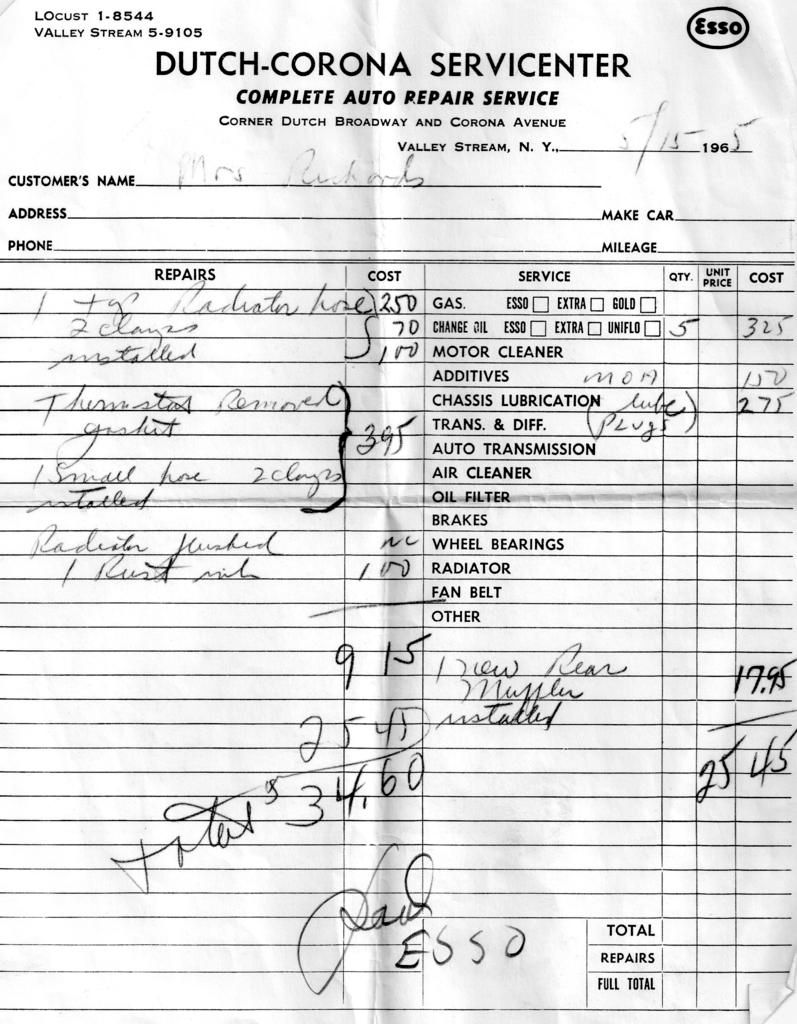 LOCUST 1-8544
VALLEY STREAM 5-9105
Esso
DUTCH-CORONA SERVICENTER
COMPLETE AUTO REPAIR SERVICE
CORNER DUTCH BROADWAY AND CORONA AVENUE
VALLEY STREAM, N. Y., 5/15 1965
CUSTOMER'S NAME Mrs Richards
ADDRESS MAKE CAR
PHONE MILEAGE
REPAIRS COST SERVICE QTY. UNIT PRICE COST
1 top Radiator hose 250 GAS. ESSO EXTRA GOLD
2 clamps 70 CHANGE OIL ESSO EXTRA UNIFLO 5 325
installed 1,00 MOTOR CLEANER
ADDITIVES MOA 150
Thermostat Removed CHASSIS LUBRICATION (lube 275
gasket 395 TRANS. & DIFF. PLUGS)
AUTO TRANSMISSION
1 Small hose 2 clamps AIR CLEANER
installed OIL FILTER
BRAKES
Radiator flushed NC WHEEL BEARINGS
1 Rust 100 RADIATOR
FAN BELT
OTHER
9 15 1 new Rear 17.95
Muffler
25 45 installed
25 45
total $ 34.60
Paid
ESSO
TOTAL
REPAIRS
FULL TOTAL